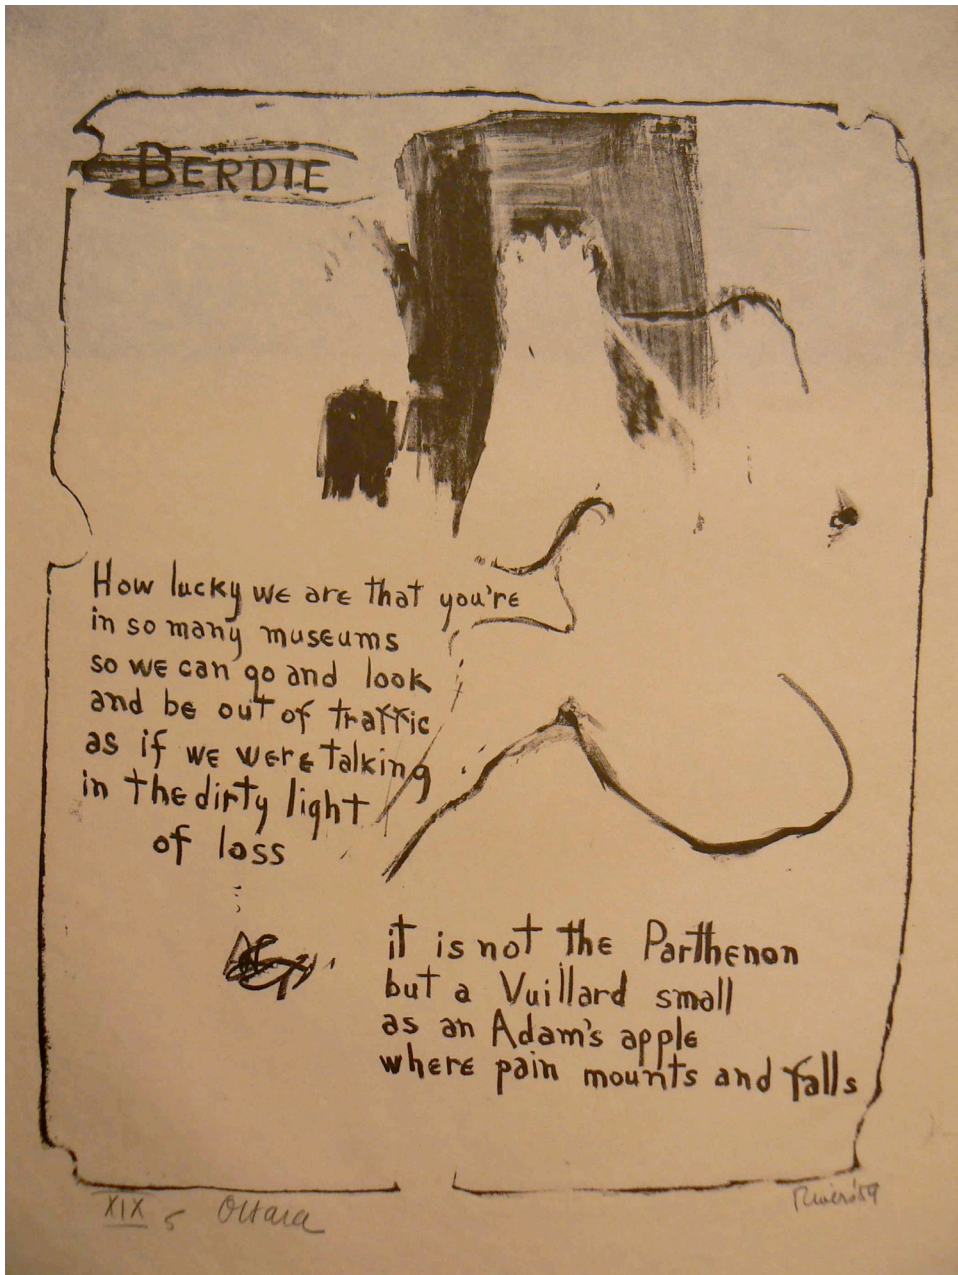 BERDIE
How lucky we are that you're
in so many museums
so we can go and look
and be out of traffic
as if we were talking
in the dirty light
of loss
it is not the Parthenon
but a Vuillard small
as an Adam's apple
where pain mounts and falls
XIX 5 O'Hara
Rivers '59